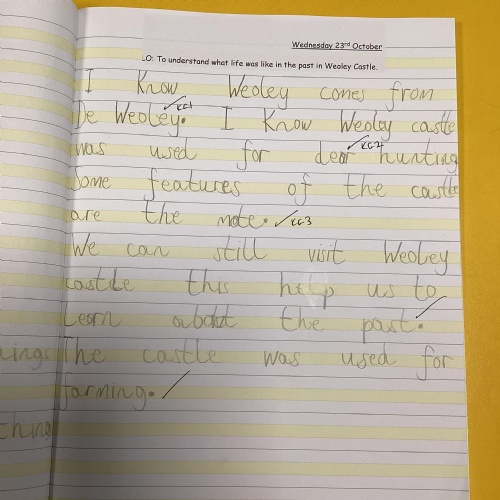 Wednesday 23rd October
LO: To understand what life was like in the past in Weoley Castle.
I Know Weoley comes from
De Weoley. KG1
I Know Weoley castle
was used for dear hunting KG2
Some features of the castle
are the mote. KG3
We can still visit Weoley
castle this help us to
Learn about the past.
ings The castle was used for
farming.
thing